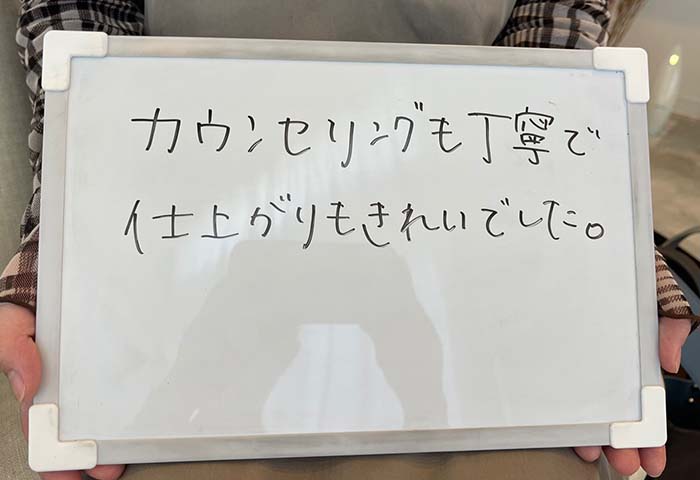 カウンセリングも丁寧で
仕上がりもきれいでした。